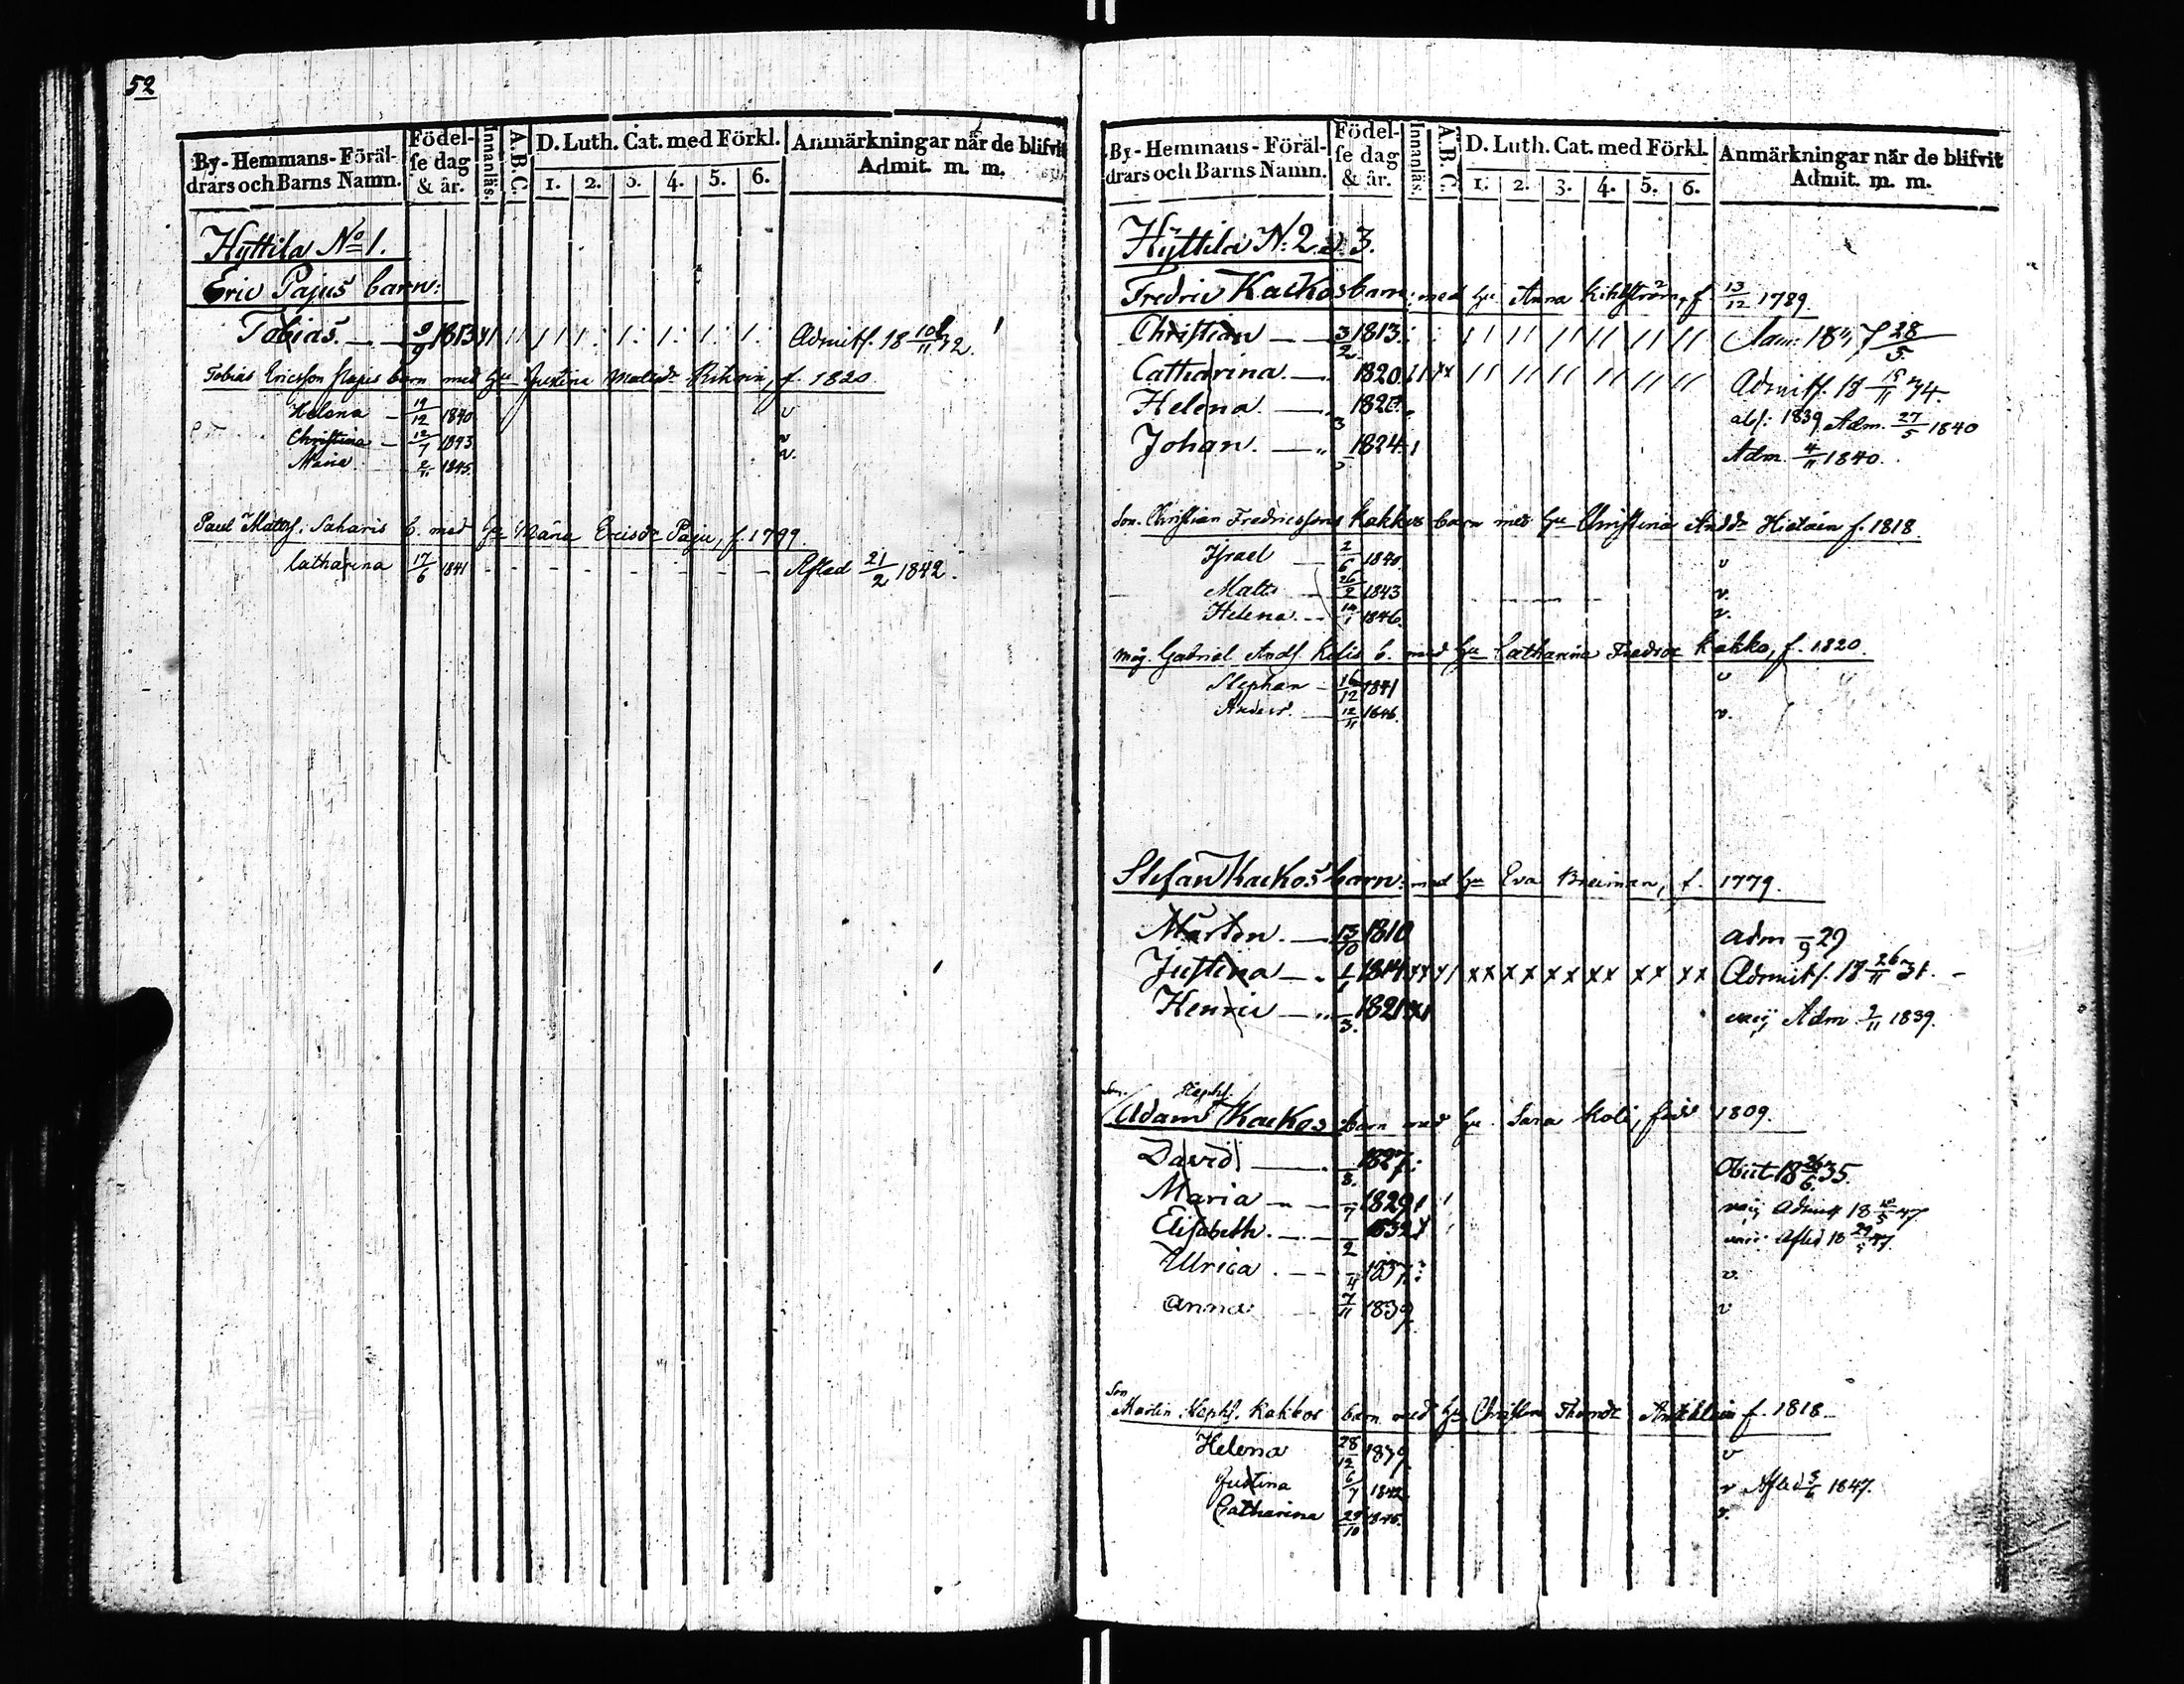 52
By-Hemmans-Föräl-
drars och Barns Namn.
Födel-
se dag
& år.
Innanläs.
A.B.C.
D. Luth. Cat. med Förkl.
1. 2. 3. 4. 5. 6.
Anmärkningar när de blifvit
Admit. m. m.
Hyttila No 1.
Eric Pajus barn:
Tobias. 9/9 1813 Admitt. 18 10/11 32.
Tobias Ericsson Pajus barn med hu Justina Matsdr f. 1820
Helena 19/12 1840 v
Christina 12/7 1843 v
Maria 2/11 1845 v.
Paul Matss. Saharis b. med hu Maria Ericsdr Paju, f. 1799.
Catharina 17/6 1841 Afled 21/2 1842.
By-Hemmans-Föräl-
drars och Barns Namn.
Födel-
se dag
& år.
Innanläs.
A.B.C.
D. Luth. Cat. med Förkl.
1. 2. 3. 4. 5. 6.
Anmärkningar när de blifvit
Admit. m. m.
Hyttila N: 2 & 3.
Fredric Kackos barn: med hu Anna Kihlström, f. 13/12 1789
Christian 3/2 1813.
Catharina. 1820. Admitt. 18 15/11 34.
Helena. 3 abs: 1839 Adm. 27/5 1840
Johan. 1824. Adm. 4/11 1840.
Son. Christian Fredricssons Kakkos barn med hu Christina Andsdr f. 1818.
Israel 2/6 1840. v
Matts 26/2 1843 v.
Helena. 1846. v.
Måg. Gabriel Ands. Kelis b. med hu Catharina Fredsdr Kakko, f. 1820.
Stephan 16/12 1841 v
Anders. 12/11 1846. v.
Stefan Kackos barn: med hu Eva f. 1779.
Mårten. 13/10 1810 adm 9 29
Justina 1/1 1814 xx xx xx xx xx xx Admitt. 18 26/11 31.
Henric 3. 1821 Adm 1839.
Son Stephs.
Adam Kackos barn med hu Sara Koli, född 1809.
David 8. 1827. Obiit 18 26/6 35.
Maria 7 1829 Admitt 18 47
Elisabeth. 2 1832 Afled 18 47.
Ulrica. 4 1837. v.
Anna 7/11 1839 v
Son
Martin Stephs. Kakkos barn med hu Christina f. 1818
Helena 28/12 1839. v
Justina 6/7 1842 v Afled 1847.
Catharina 29/10 1845. v.